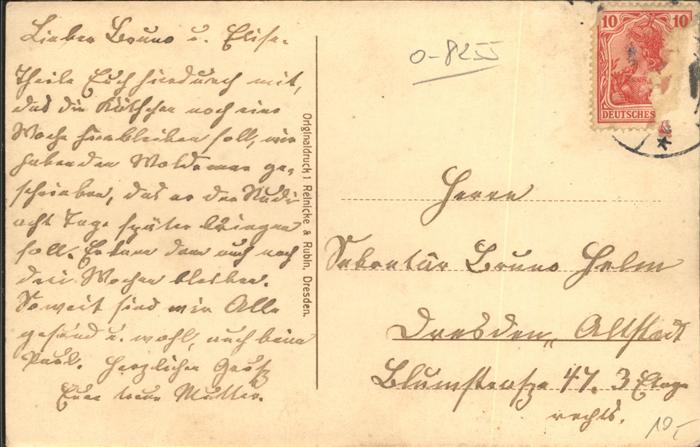 Lieber Bruno u. Elise.
Theile Euch hierdurch mit,
das die Käthchen noch eine
Woche hierbleiben soll, wir
haben den Woldemar ge-
schrieben, das er den Rudi
acht Tage später bringen
soll. Er kann dann auch noch
drei Wochen bleiben.
Soweit sind wir Alle
gesund u. wohl, auch beim
Paul. Herzlichen Gruß
Eure treue Mutter.
Originaldruck: Reinicke & Rubin, Dresden.
0-8255
10 10
DEUTSCHES
Herrn
Sekretär Bruno Helm
Dresden, Altstadt
Blumstraße 47. 3 Etage
rechts.
10,-